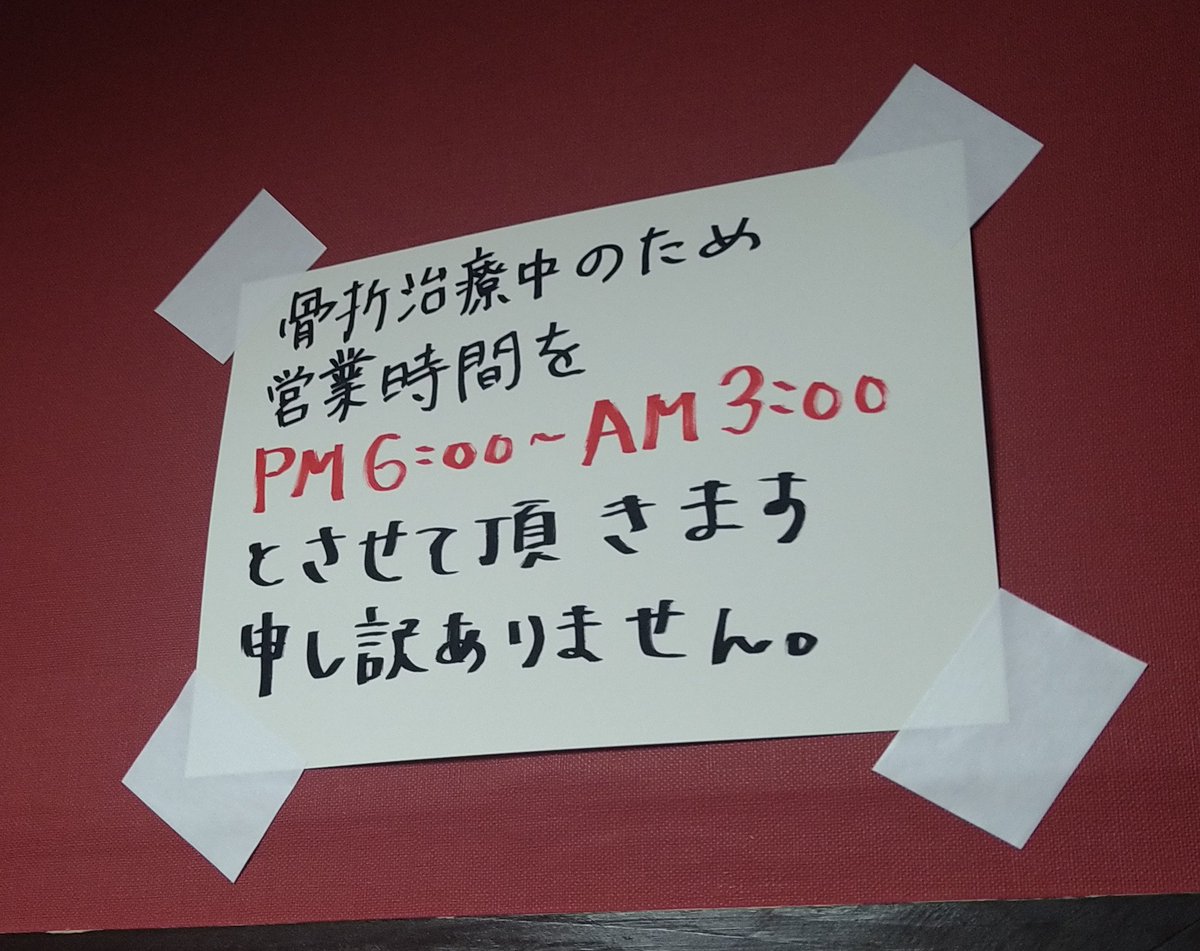 骨折治療中のため
営業時間を
PM6:00~AM3:00
とさせて頂きます
申し訳ありません。